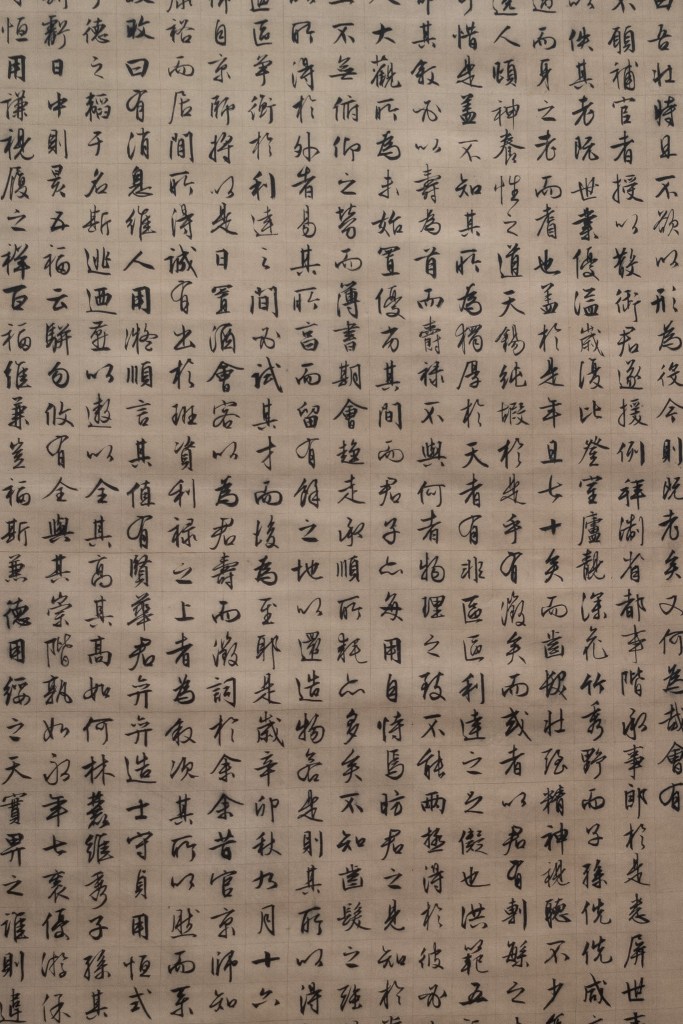 曰吾壯時且不欲以形為役今則既老矣又何為哉會有
不願補官者授以散術君遂援例拜制省都事階承事郎於是悉屏世事
以佚其老既世業優溢歲復比登室廬靚深花竹秀野而子孫侁侁咸
適而身之老而耆也盖於是年且七十矣而齒髮壯强精神視聽不少
逸人頤神養性之道天錫純嘏於是乎有徵矣而或者以君有剸繁之
可惜是盖不知其所為獨厚於天者有非區區利達之足儗也洪範五
即其叙必以壽為首而爵祿不與何者物理之致不能兩極得於彼必
人大觀所為未始置優劣其間而君子亦每用自恃焉昉君之見知於
不無俯仰之勞而薄書期會趨走承順所耗亦多矣不知齒髮之强
以所得於外者易其所啬而留有餘之地以還造物若是則其所以得
區區筭衡於利達之間必試其才而後為至耶是歲辛卯秋九月十六
仰自京師將以是日置酒會客以為君壽而徵詞於余余昔官京師知
康裕而居間所得誠有出於班資利祿之上者為叙次其所以然而系
攸曰有消息維人用將順言其值有賢華君弁弁造士守貞用恒式
德之韜于名斯逃迺亟以遨以全其高其高如何林藪維秀子孫其
虧日中則昃五福云駢匄攸有全與其崇階孰如永年七袠優游保
恒用謙視履之祥百福維兼豈福斯兼德用綏之天實畀之誰則違